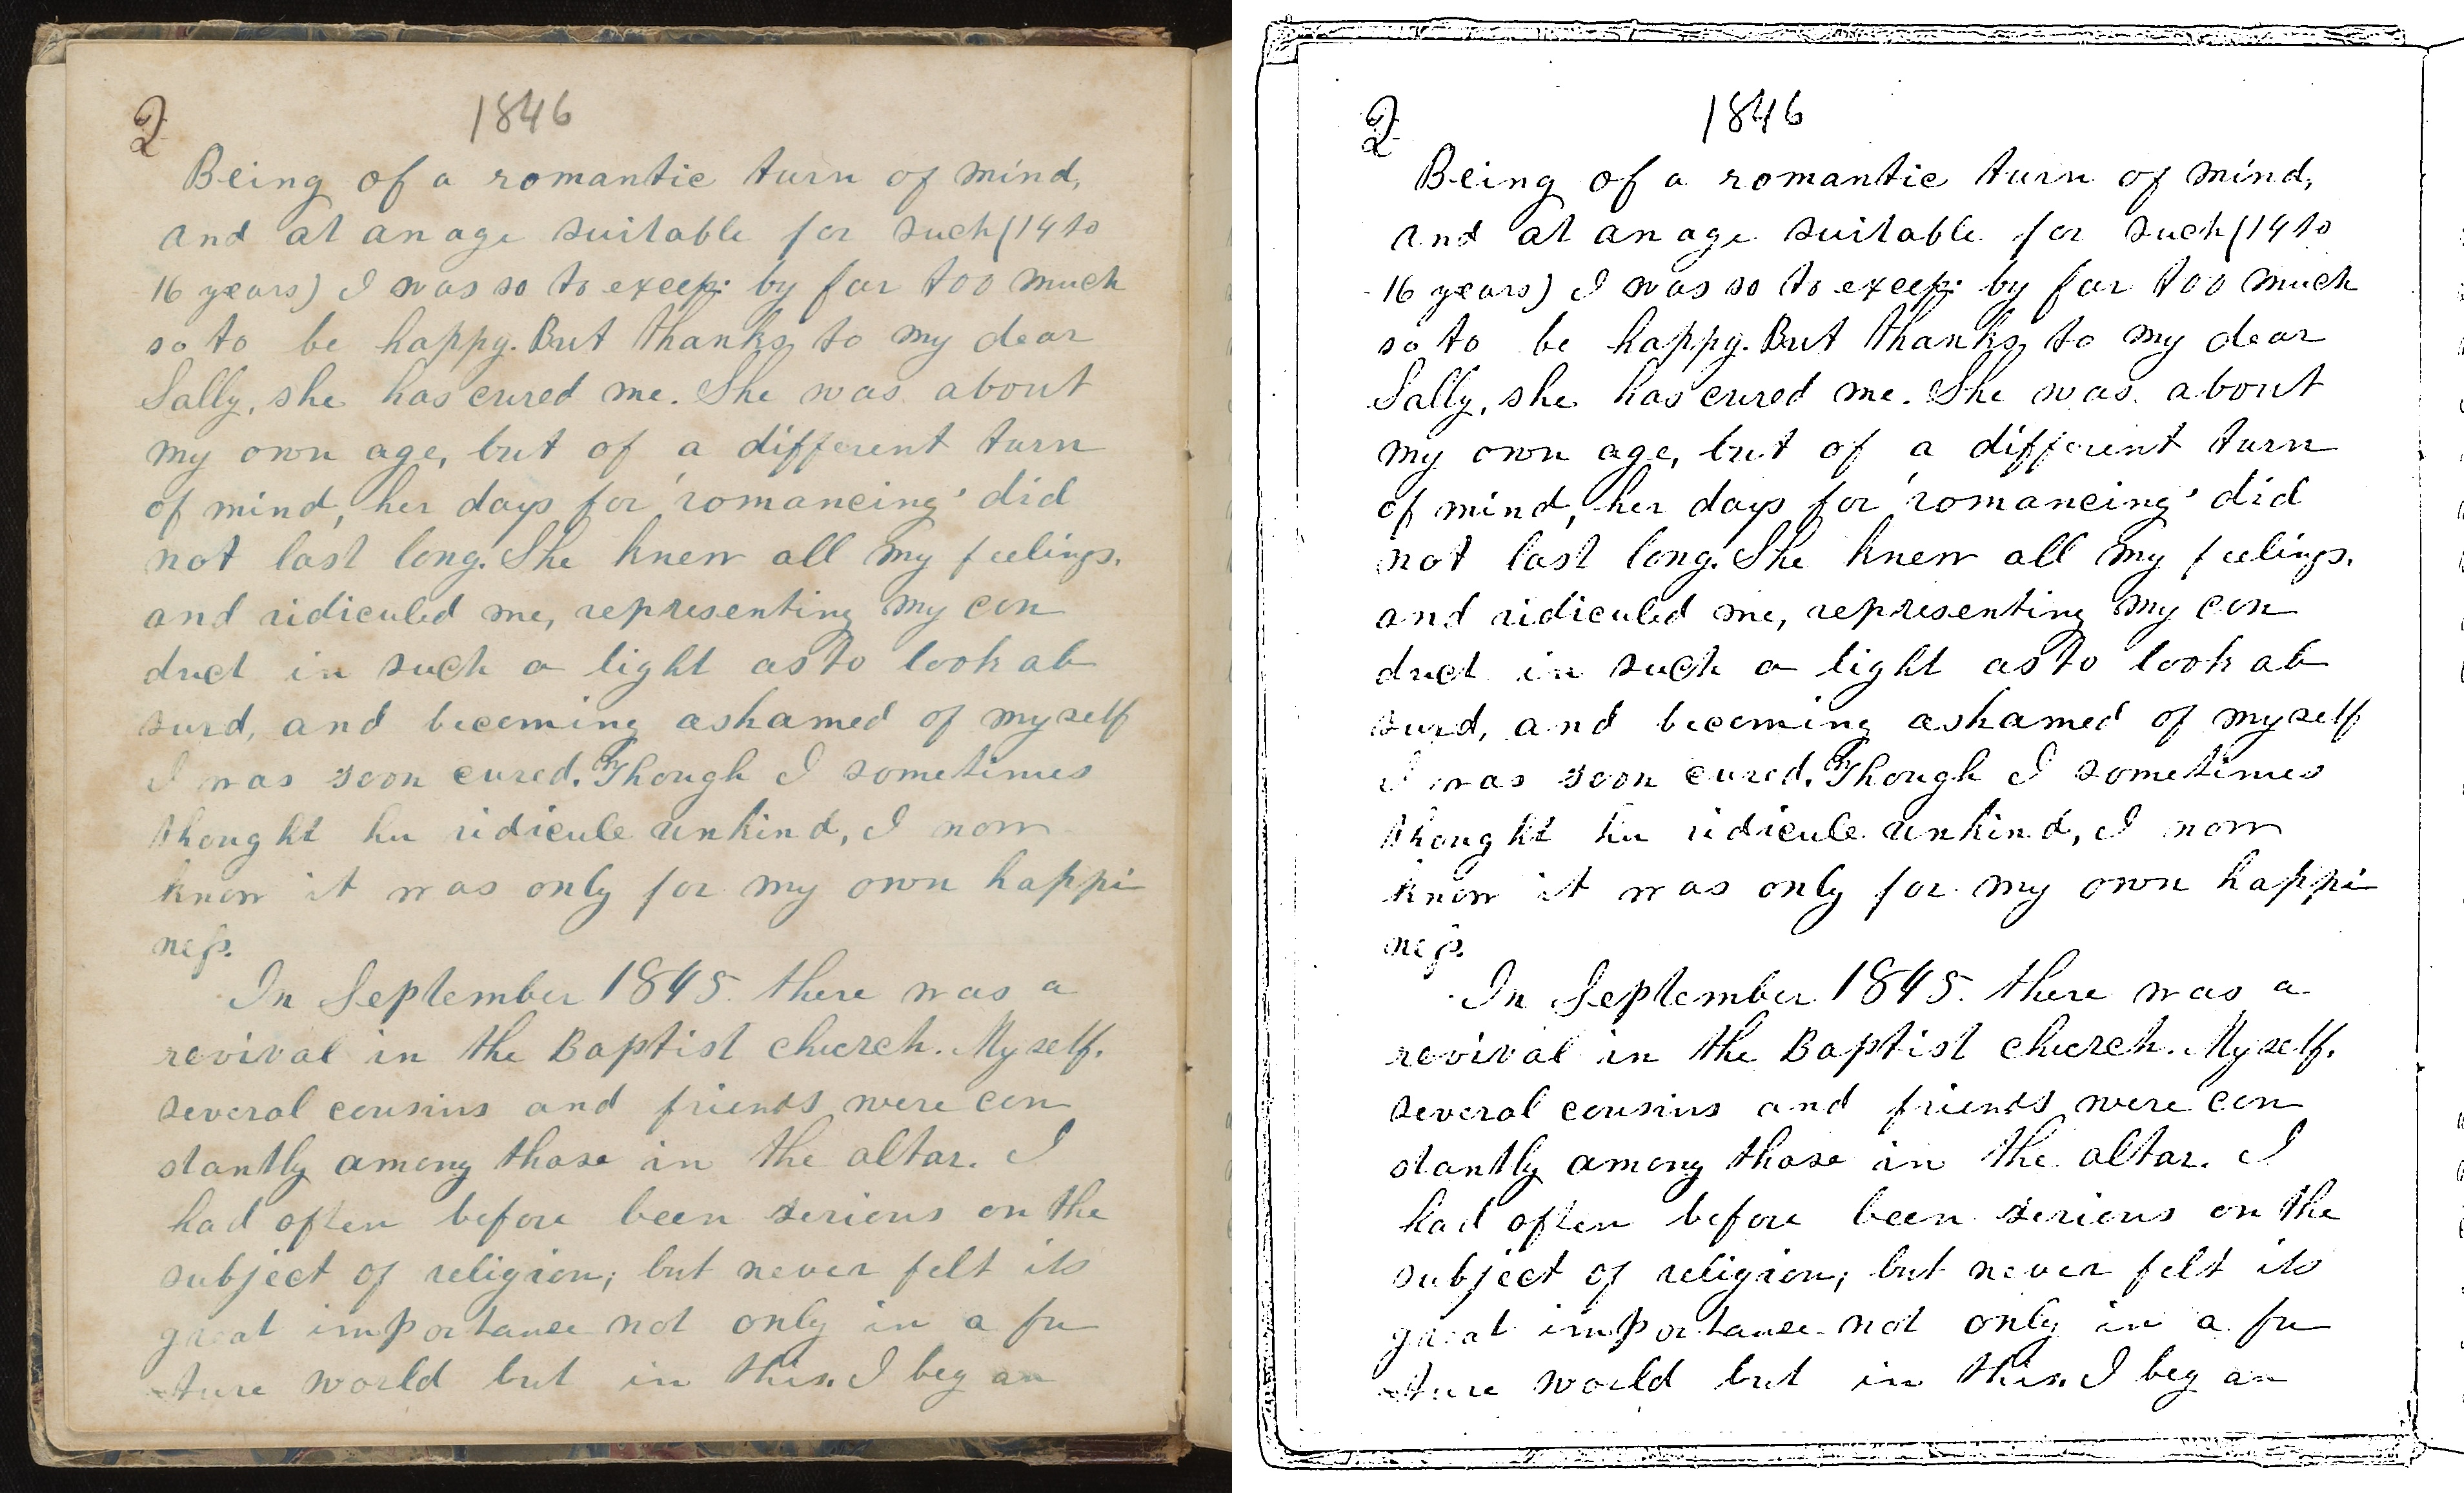 2 1846
Being of a romantic turn of mind,
and at an age suitable for such (14 to
16 years) I was so to excess by far too much
so to be happy. But thanks to my dear
Sally, she has cured me. She was about
my own age, but of a different turn
of mind, her days for 'romancing' did
not last long. She knew all my feelings,
and ridiculed me, representing my con
duct in such a light as to look ab
surd, and becoming ashamed of myself
I was soon cured. Though I sometimes
thought her ridicule unkind, I now
know it was only for my own happi
ness.
In September 1845. there was a
revival in the Baptist church. Myself,
several cousins and friends were con
stantly among those in the altar. I
had often before been serious on the
subject of religion; but never felt its
great importance not only in a fu
ture world but in this. I began
2 1846
Being of a romantic turn of mind,
and at an age suitable for such (14 to
16 years) I was so to excess by far too much
so to be happy. But thanks to my dear
Sally, she has cured me. She was about
my own age, but of a different turn
of mind, her days for 'romancing' did
not last long. She knew all my feelings,
and ridiculed me, representing my con
duct in such a light as to look ab
surd, and becoming ashamed of myself
I was soon cured. Though I sometimes
thought her ridicule unkind, I now
know it was only for my own happi
ness.
In September 1845. there was a
revival in the Baptist church. Myself,
several cousins and friends were con
stantly among those in the altar. I
had often before been serious on the
subject of religion; but never felt its
great importance not only in a fu
ture world but in this. I began